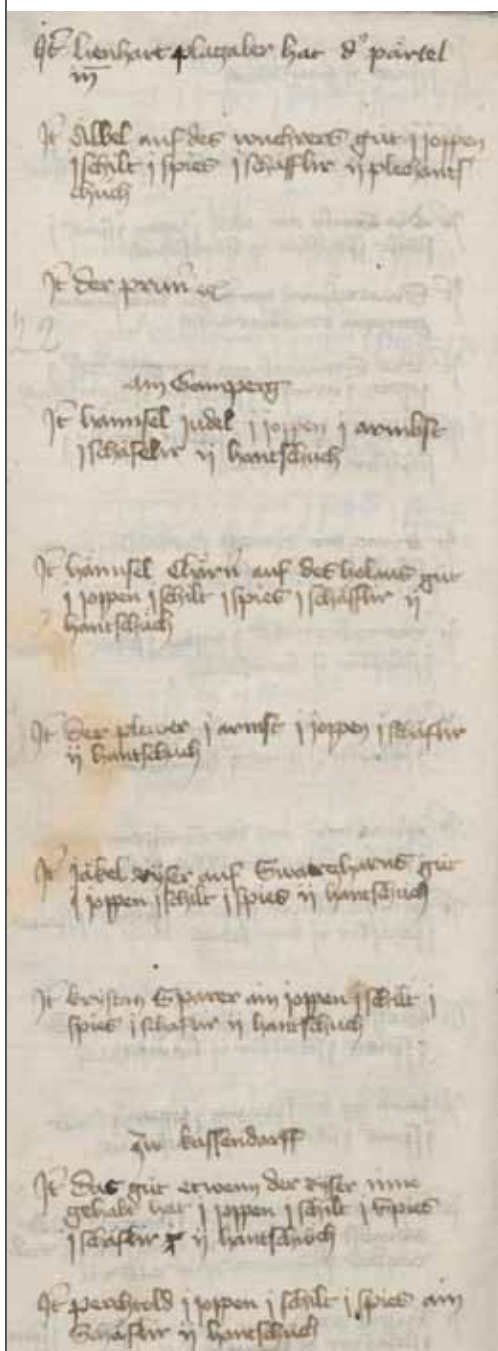 It lienhart plagaber hat d' pärtel
iij
It Albel auf des wuchrers gut j joppen
j schilt j spies j schäfflir ij plechants
chuch
It der primer
am Gamperg
It hannsel judel j joppen j armbst
j schäfelir ij hantschuch
It hännsel Chärn' auf des holans gut
j joppen j schilt j spies j schäfflir ij
hantschuch
It der plewer j armst j joppen j schäflir
ij hantschuch
It jäkel ryser auf Swarczharns gut
j joppen j schilt j spies ij hantschuch
It kristan Sparer ain joppen j schilt j
spies j schäflir ij hantschuch
zw kassendorff
It Das gut etwenn der ryser inne
gehabt hat j joppen j schilt j Spies
j schäflir ij hantschuch
It perchtold j joppen j schilt j spies ain
Schäflir ij hantschuch